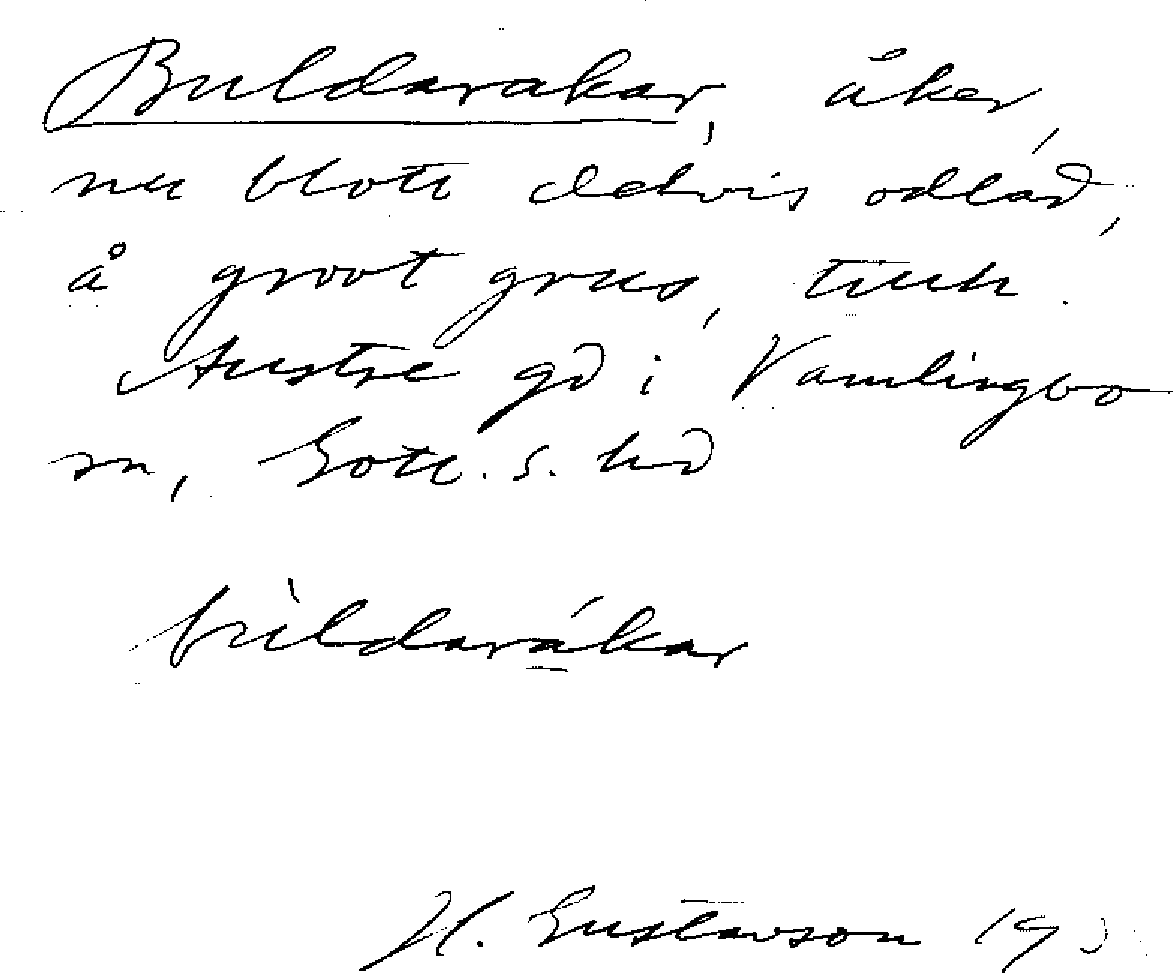 Buldarakar, åker,
nu blott delvis odlad,
å grovt grus, tillh.
Austre gd i Vamlingbo
sn, Gotl. s. hd
bùldarákar
H. Gustavson 19